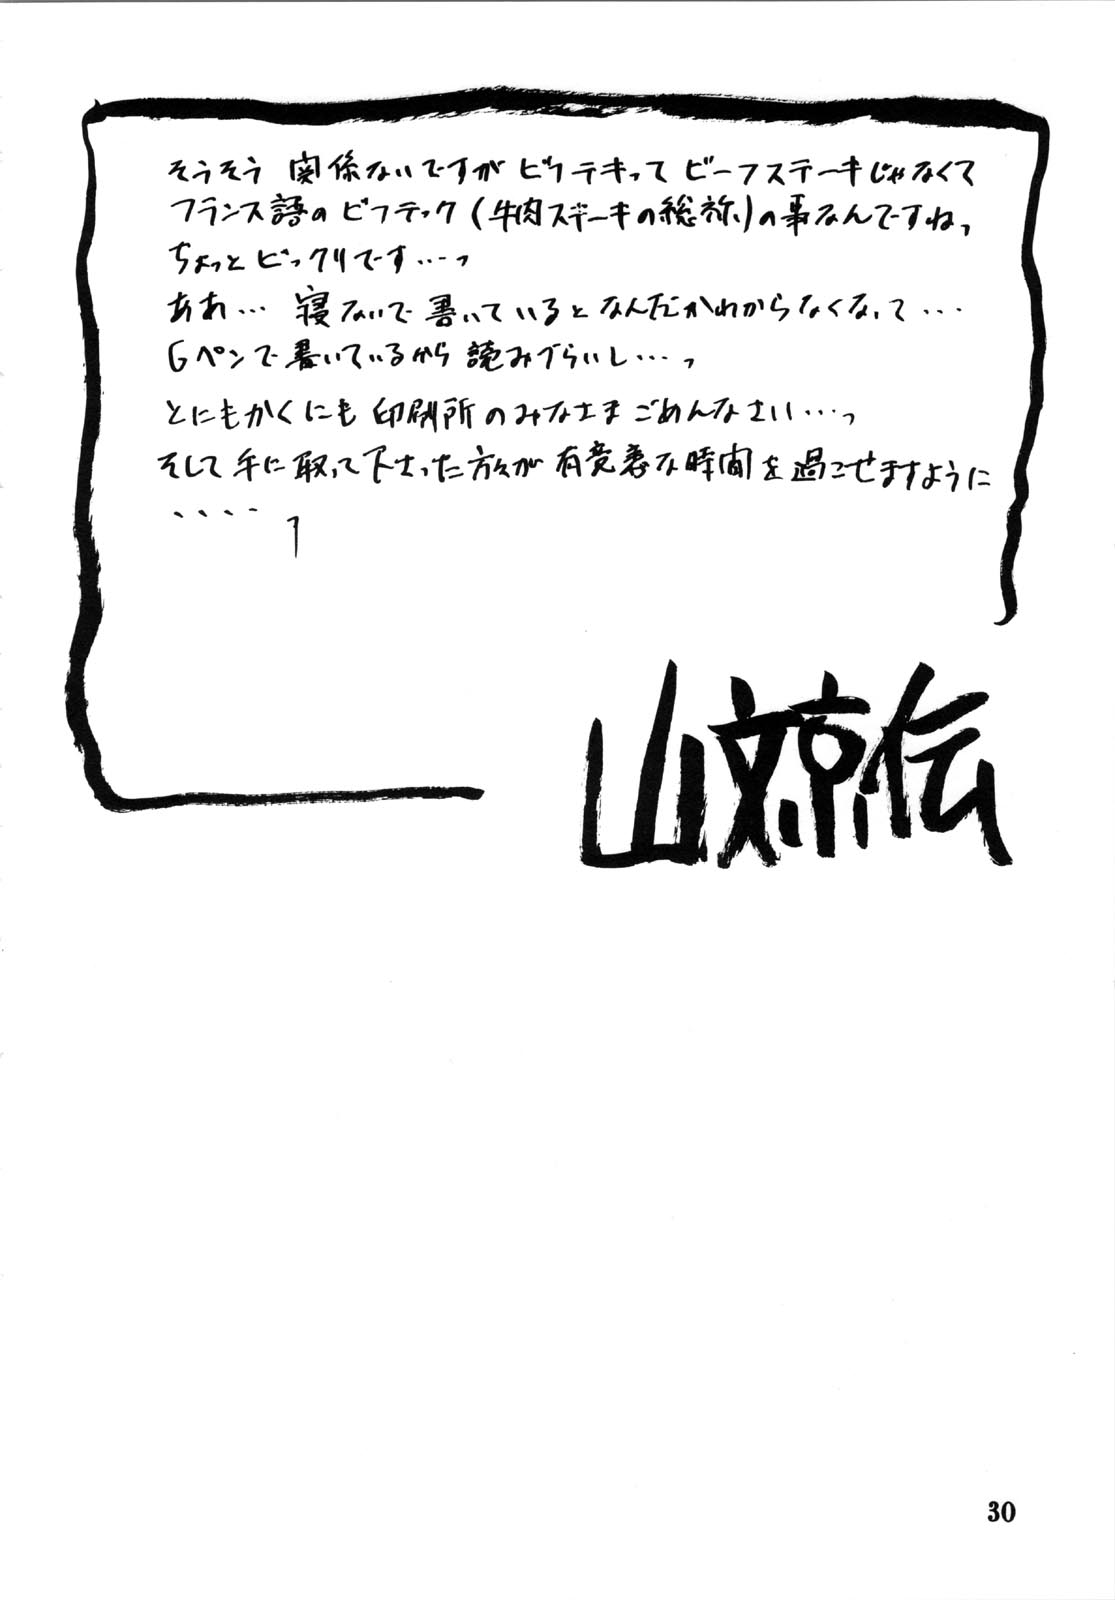 そうそう 関係ないですが ビフテキって ビーフステーキじゃなくて
フランス語の ビフテック (牛肉ステーキの総称)の事なんですねっ
ちょっと ビックリです…っ
ああ… 寝ないで 書いていると なんだかわからなくなって…
Gペンで 書いているから 読みづらいし…っ
とにもかくにも 印刷所のみなさま ごめんなさい…っ
そして 手に取って下さった方々が 有意義な時間を過ごせますように
・・・・っ
山文京伝
30